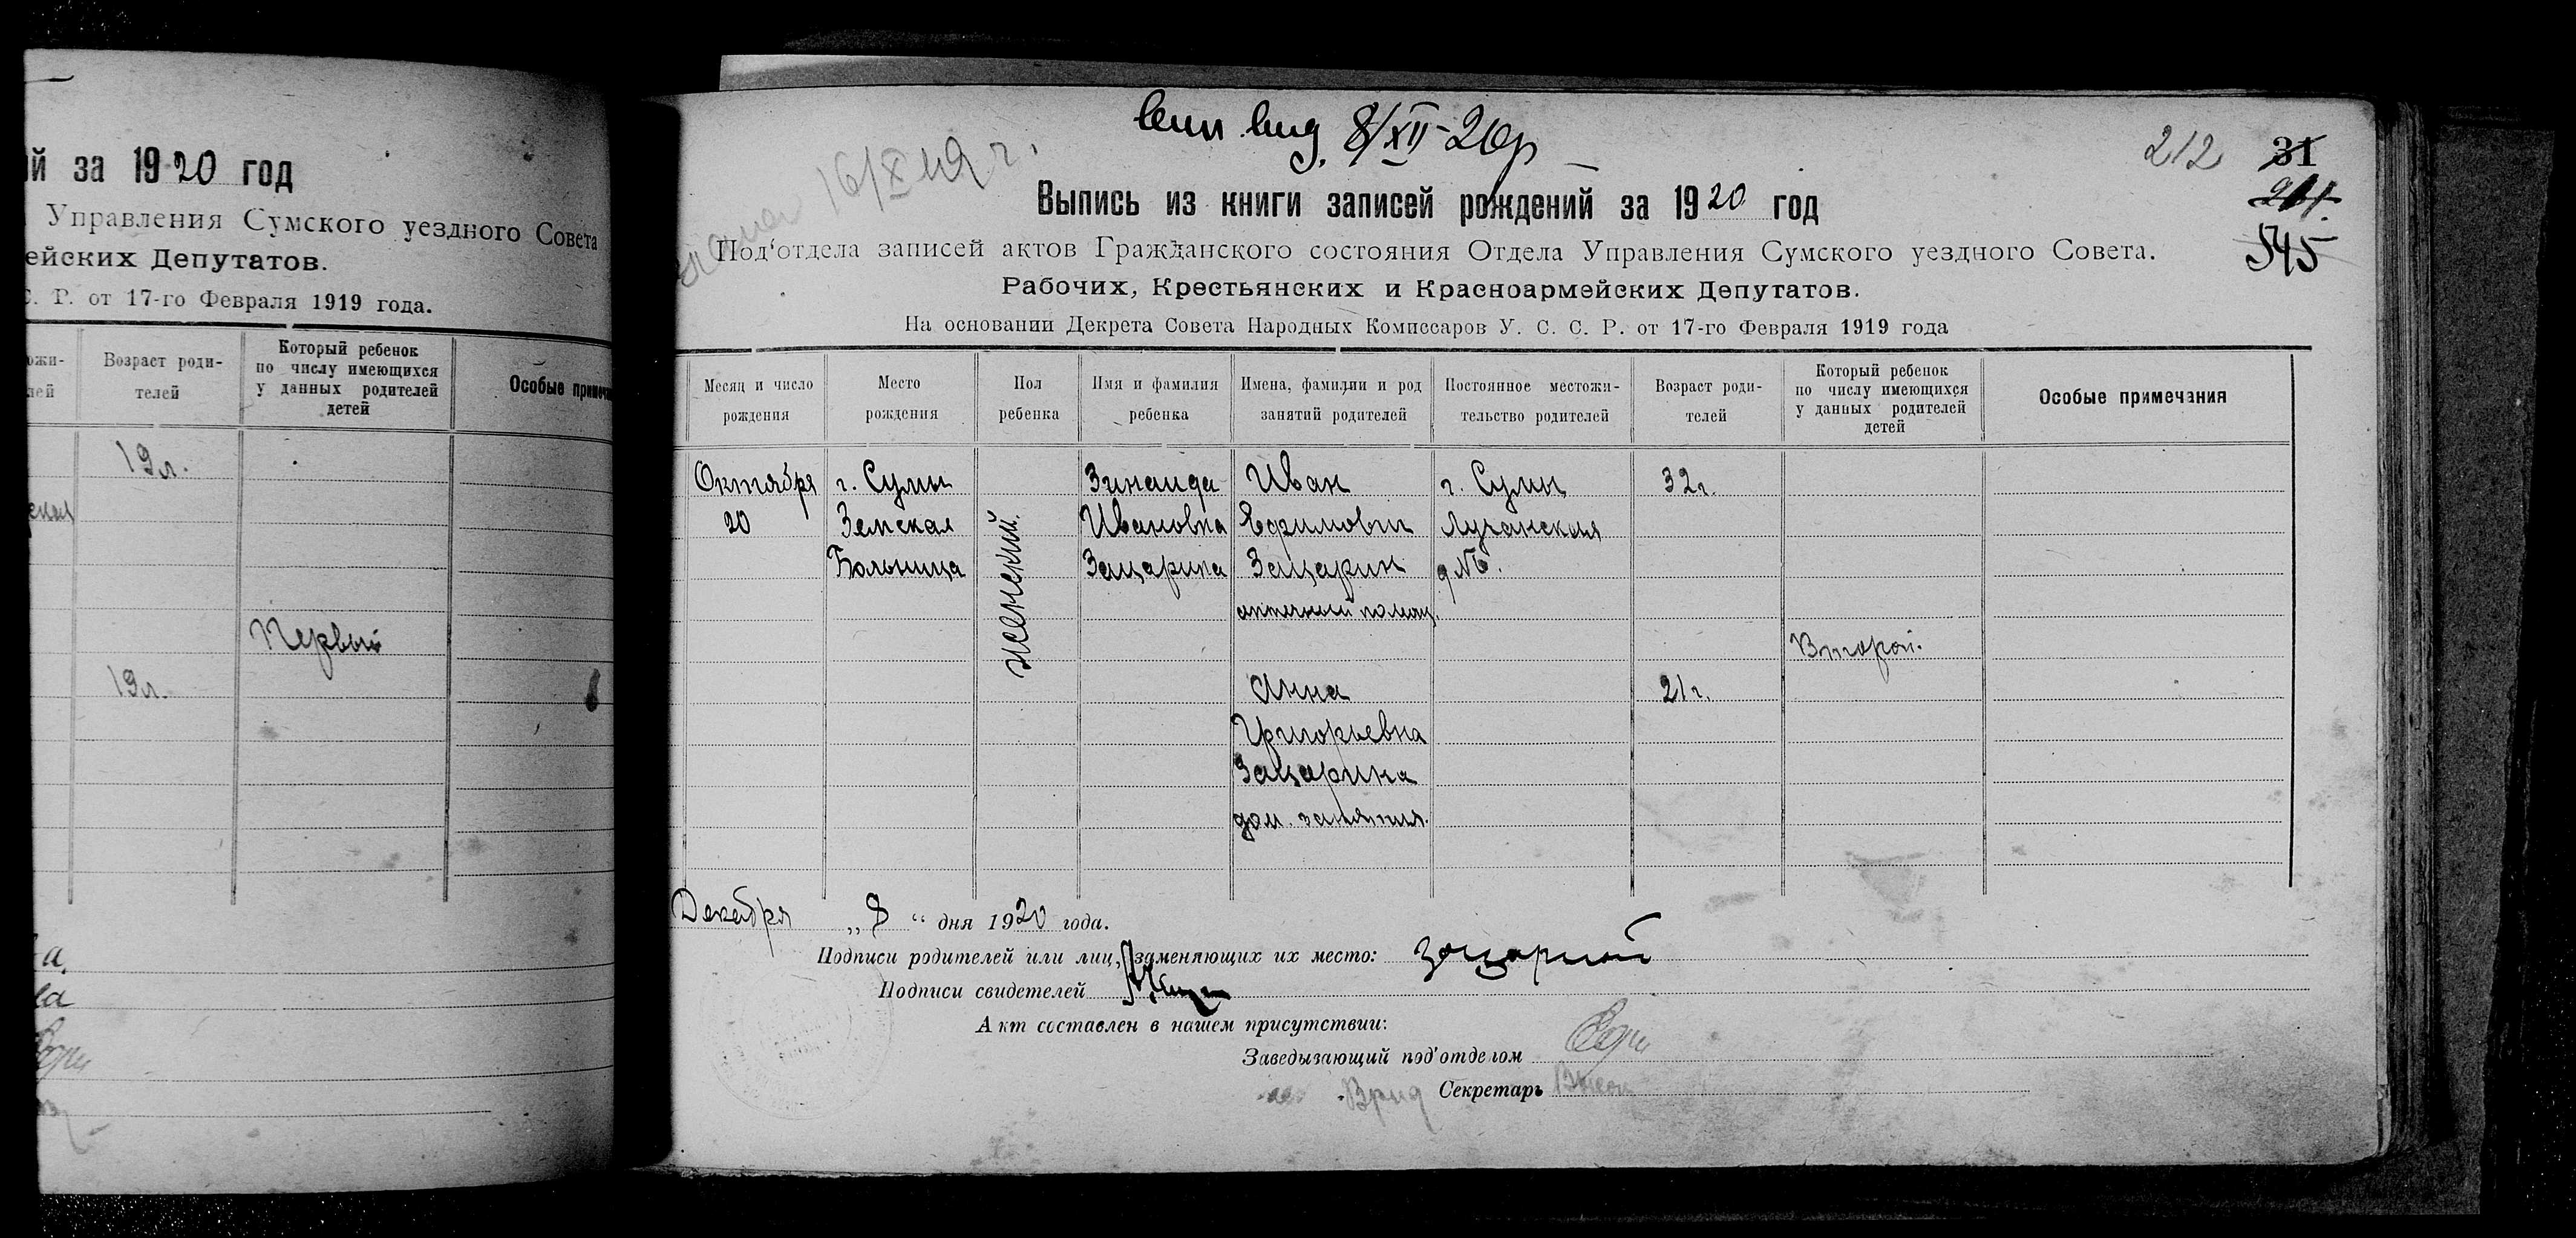 й за 1920 год
Управления Сумского уездного Совета
ейских Депутатов.
С. Р. от 17-го Февраля 1919 года.
ожи-
лей
Возраст роди-
телей
Который ребенок
по числу имеющихся
у данных родителей
детей
Особые примеча
19 л.
Первый
19 л.
а.
ла
8/XII-20р
16/X 49 г.
212
31
211
545
Выпись из книги записей рождений за 1920 год
Под‘отдела записей актов Гражданского состояния Отдела Управления Сумского уездного Совета.
Рабочих, Крестьянских и Красноармейских Депутатов.
На основании Декрета Совета Народных Комиссаров У. С. С. Р. от 17-го Февраля 1919 года
Месяц и число
рождения
Место
рождения
Пол
ребенка
Имя и фамилия
ребенка
Имена, фамилии и род
занятий родителей
Постоянное местожи-
тельство родителей
Возраст роди-
телей
Который ребенок
по числу имеющихся
у данных родителей
детей
Особые примечания
Октября
20
г. Сумы
Земская
Больница
женский.
Зинаида
Ивановна
Зацарина
Иван
Ефимович
Зацарин
аптечный помощ.
Анна
Григорьевна
Зацарина
дом. занятия.
г. Сумы
Лучанская
32 г.
21 г.
Второй.
Декабря „ 8 “ дня 1920 года.
Подписи родителей или лиц, заменяющих их место:
Подписи свидетелей
Акт составлен в нашем присутствии:
Заведызающий под‘отделом
Врид Секретарь